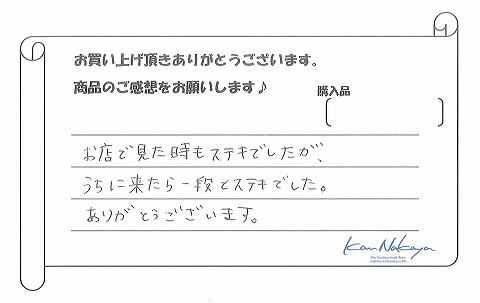 お買い上げ頂きありがとうございます。
商品のご感想をお願いします♪
購入品
お店で見た時もステキでしたが、
うちに来たら一段とステキでした。
ありがとうございます。
Kan Nakaya